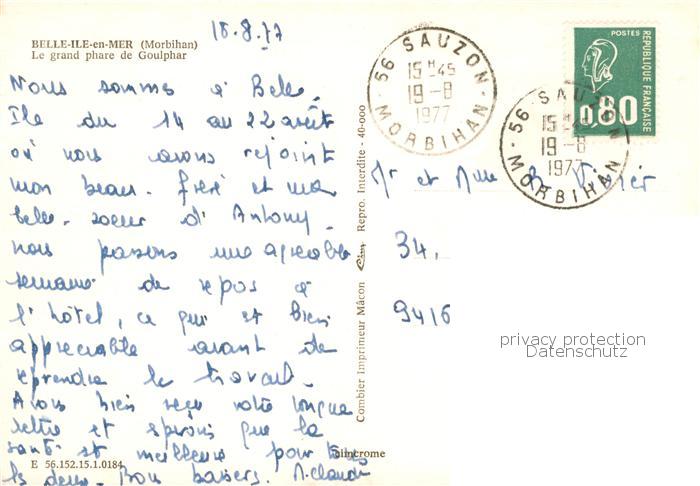 18.8.77
BELLE-ILE-en-MER (Morbihan)
Le grand phare de Goulphar
Nous sommes à Belle-
Ile du 14 au 22 août
où nous avons rejoint
mon beau-frère et ma
belle-soeur d'Antony.
nous passons une agréable
semaine de repos à
l'hôtel, ce qui est bien
appreciable avant de
reprendre le travail.
Avons bien reçu votre longue
lettre et espérons que la
santé est meilleure pour tous
les deux. Bons baisers. M. Claude
E 56.152.15.1.0184
Combier Imprimeur Mâcon Cim Repro. Interdite - 40-000
alincrome
56 SAUZON
15H45
19-8
1977
MORBIHAN
56 SAUZON
15H45
19-8
1977
MORBIHAN
POSTES
REPUBLIQUE FRANÇAISE
0,80
Mr et Mme R. Vivier
34,
9416
privacy protection
Datenschutz